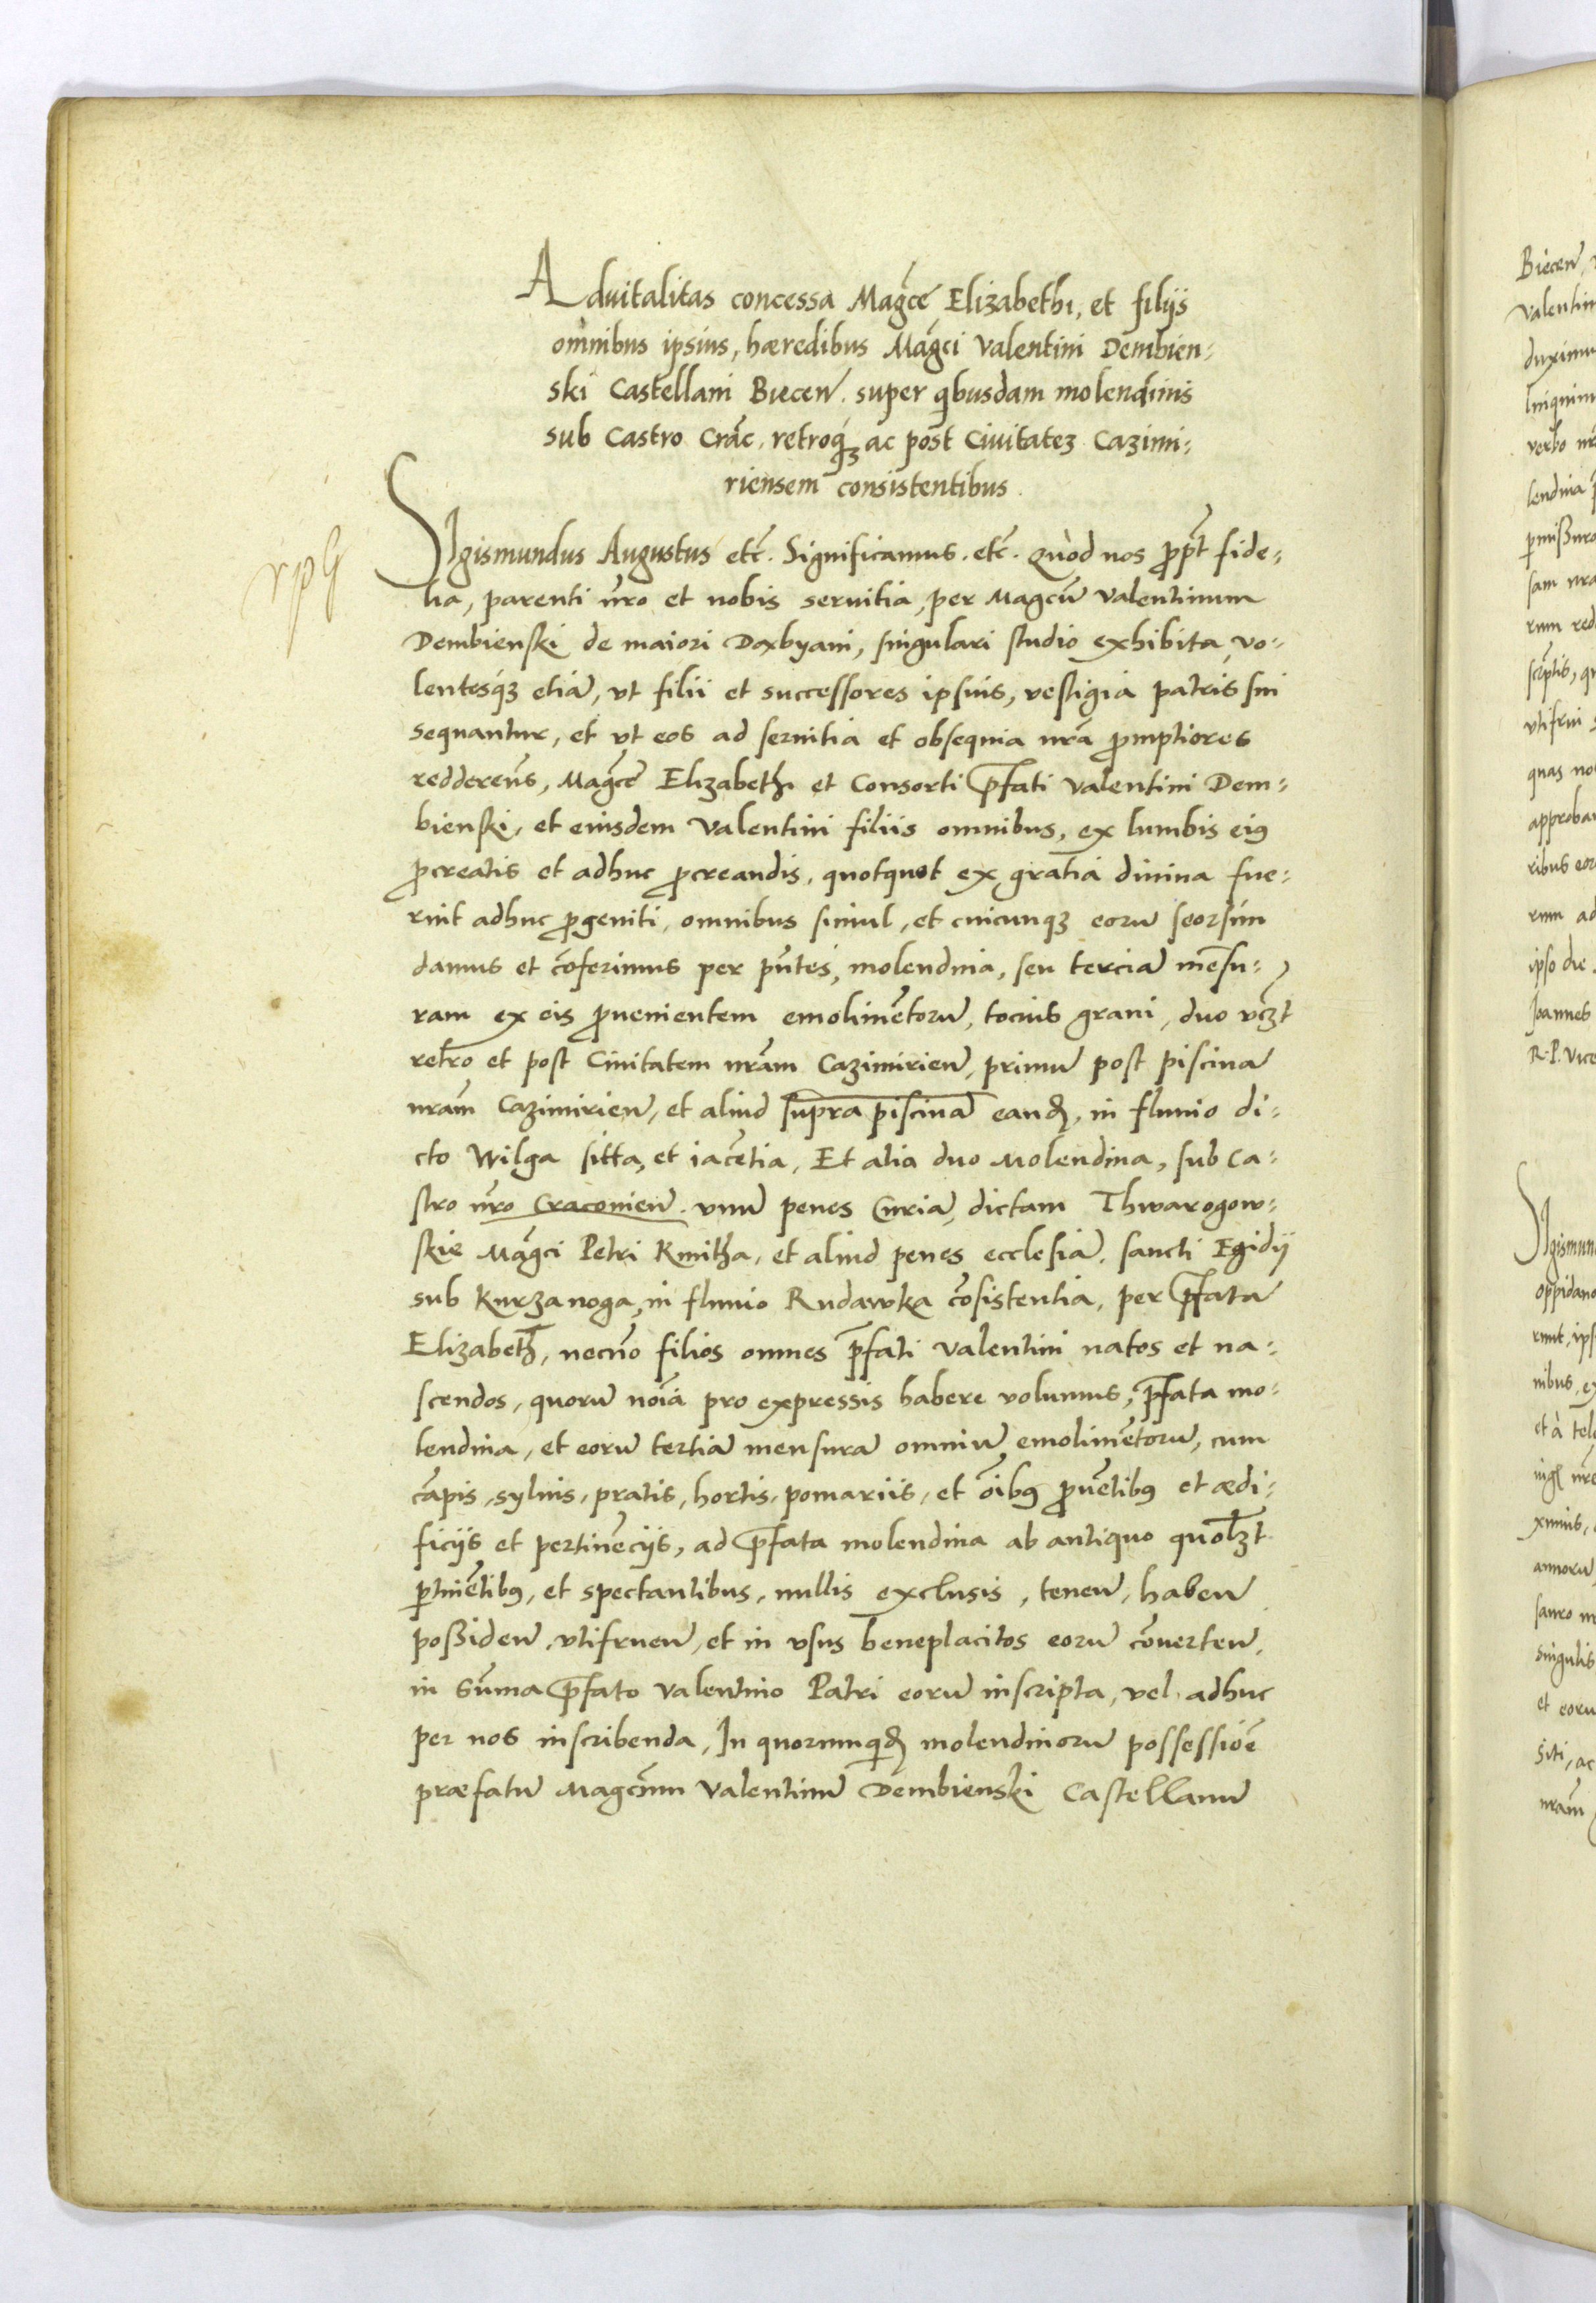 Aduitalitas concessa Mag̃ce Elizabethi, et filijs
omnibus ipsius, hæredibus Mag̃ci Valentini Dembien-
ski Castellani Biecen̄. super q̃busdam molendinis
sub Castro Crac̃. retroq́ꝫ ac post Ciuitateꝫ Cazimi-
riensem consistentibus.
Sigismundus Augustus etc̃. Significamus. etc̃. Quòd nos ꝓpt̃ fide-
lia, parenti nr̃o et nobis seruitia, per Magcū Valentinum
Dembienski de maiori Doxbyani, singulari studio exhibita, vo-
lentesq́ꝫ etiā, vt filii et successores ipsius, vestigia patris sui
sequantur, et vt eos ad seruitia et obsequia nrã ꝓmptiores
redderem̃s, Mag̃ce Elizabeth et Consorti p̃fati Valentini Dem-
bienski, et eiusdem Valentini filiis omnibus, ex lumbis eiꝰ
ꝓcreatis et adhuc ꝓcreandis, quotquot ex gratia diuina fue-
rint adhuc ꝓgeniti, omnibus simul, et cuicunqꝫ eorū seorsim
damus et cōferimus per pñtes, molendina, seu terciā mēsu-
ram ex eis ꝓuenientem emolimētorū, tocius grani, duo vcꝫt
retro et post Ciuitatem nrãm Cazimirien̄, primū post piscinā
nrãm Cazimirien̄, et aliud supra piscinā eandꝫ, in fluuio di-
cto Wilga sitta, et iacētia, Et alia duo Molendina, sub Ca-
stro nr̃o Cracouien̄. vnū penes Curiā, dictam Thwarogow-
skie Mag̃ci Petri Kmitha, et aliud penes ecclesiā. sancti Egidij
sub Kurzanoga, in fluuio Rudawka cōsistentia, per p̃fatā
Elizabeth, necnō filios omnes p̃fati Valentini natos et na-
scendos, quorū noĩa pro expressis habere volumus, p̃fata mo-
lendina, et eorū tertiā mensurā omniū emolimētorū, cum
cāpis, syluis, pratis, hortis, pomariis, et oĩbꝰ ꝓuētibꝰ et ædi-
ficijs et pertinēcijs, ad p̃fata molendina ab antiquo quolꝫt
ꝑtinētibꝰ, et spectantibus, nullis exclusis, tenen̄, haben̄
possiden̄, vtifruen̄, et in vsus beneplacitos eorū cōuerten̄,
in Sūma p̃fato Valentino Patri eorū inscripta, vel adhuc
per nos inscribenda, In quorumquidꝫ molendinorū possessiōe
præfatū Magcum Valentinū Dembienski Castellanū